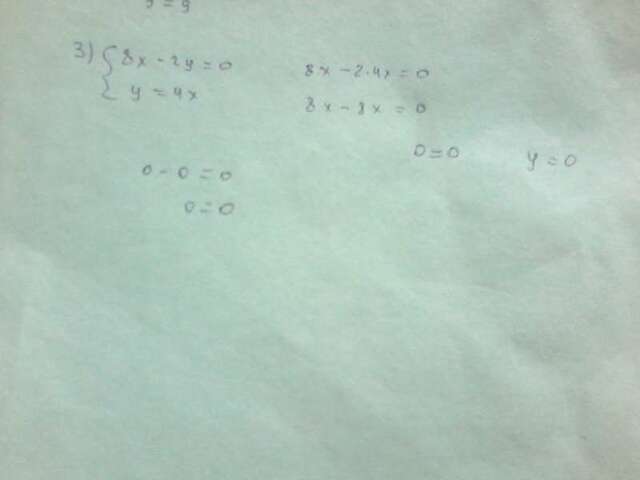 3) { 8x - 2y = 0
{ y = 4x
8x - 2·4x = 0
8x - 8x = 0
0 = 0
y = 0
0 - 0 = 0
0 = 0